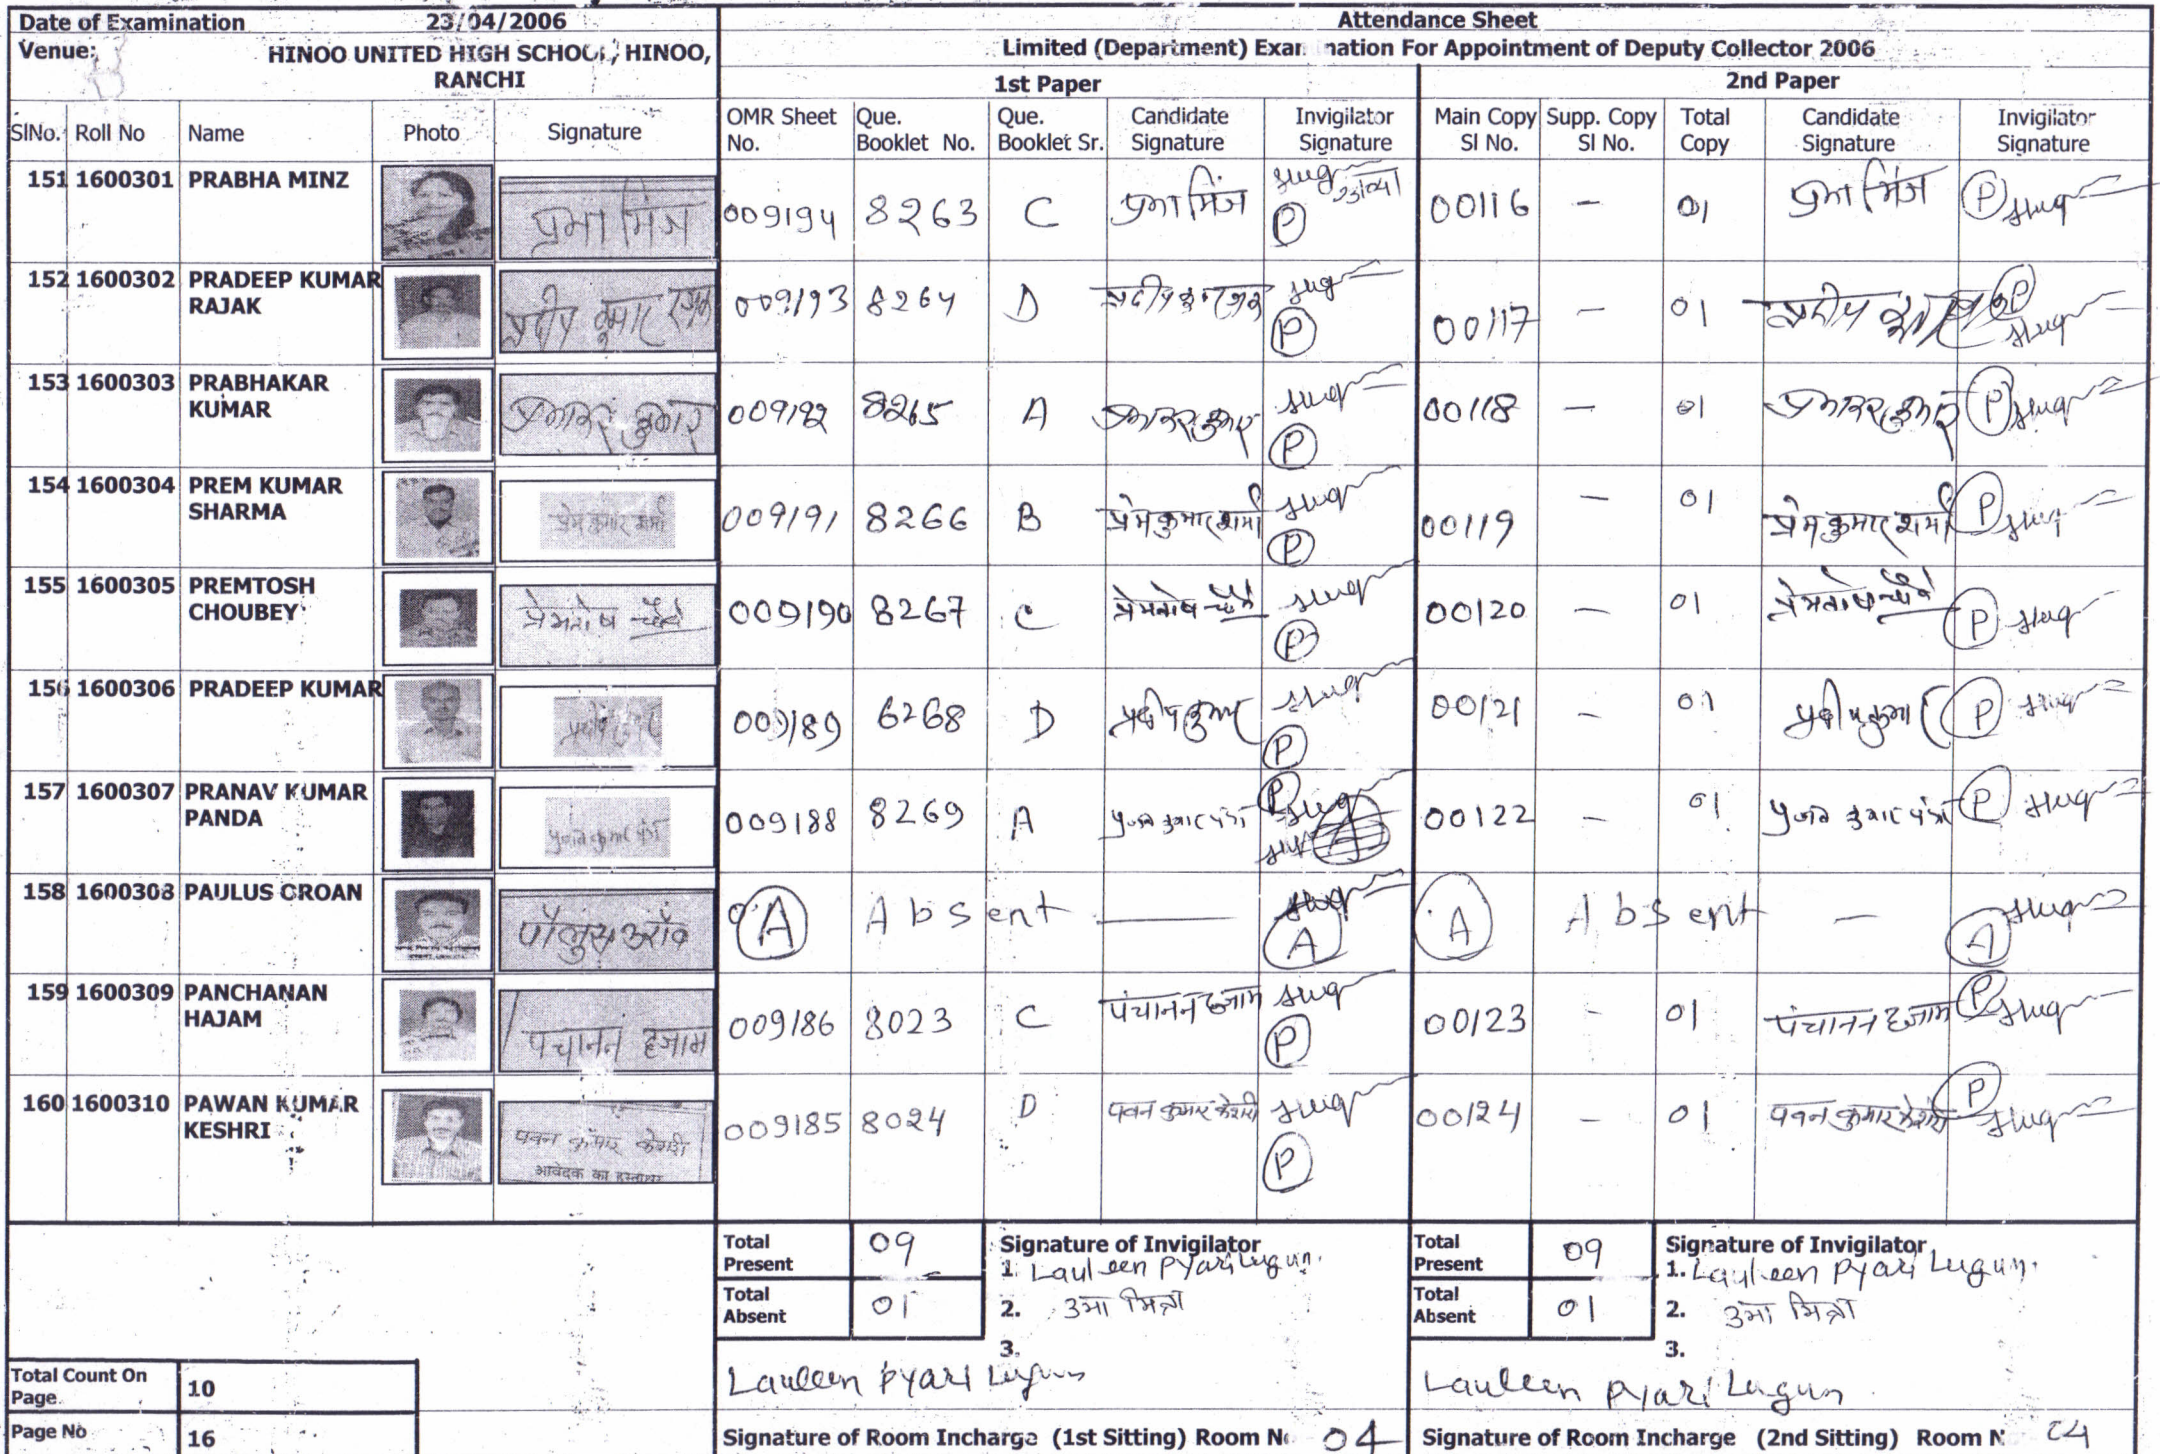 Date of Examination 23/04/2006 Attendance Sheet
Venue: HINOO UNITED HIGH SCHOOL, HINOO, RANCHI
Limited (Department) Examination For Appointment of Deputy Collector 2006
1st Paper 2nd Paper
SlNo. Roll No Name Photo Signature OMR Sheet No. Que. Booklet No. Que. Booklet Sr. Candidate Signature Invigilator Signature Main Copy Sl No. Supp. Copy Sl No. Total Copy Candidate Signature Invigilator Signature
151 1600301 PRABHA MINZ प्रभा मिंज 009194 8263 C प्रभा मिंज P 00116 – 01 प्रभा मिंज P
152 1600302 PRADEEP KUMAR RAJAK प्रदीप कुमार रजक 009193 8264 D प्रदीप कुमार रजक P 00117 – 01 P
153 1600303 PRABHAKAR KUMAR प्रभाकर कुमार 009192 8265 A प्रभाकर कुमार P 00118 – 01 प्रभाकर कुमार P
154 1600304 PREM KUMAR SHARMA प्रेम कुमार शर्मा 009191 8266 B प्रेम कुमार शर्मा P 00119 – 01 प्रेम कुमार शर्मा P
155 1600305 PREMTOSH CHOUBEY प्रेमतोष चौबे 009190 8267 C प्रेमतोष चौबे P 00120 – 01 प्रेमतोष चौबे P
156 1600306 PRADEEP KUMAR प्रदीप कुमार 009189 6268 D प्रदीप कुमार P 00121 – 01 प्रदीप कुमार P
157 1600307 PRANAV KUMAR PANDA प्रणव कुमार पंडा 009188 8269 A प्रणव कुमार पंडा P 00122 – 01 प्रणव कुमार पंडा P
158 1600308 PAULUS OROAN पॉलुस उराँव A Absent — A A Absent — A
159 1600309 PANCHANAN HAJAM पंचानन हजाम 009186 8023 C पंचानन हजाम P 00123 – 01 पंचानन हजाम P
160 1600310 PAWAN KUMAR KESHRI पवन कुमार केशरी आवेदक का हस्ताक्षर 009185 8024 D पवन कुमार केशरी P 00124 – 01 पवन कुमार केशरी P
Total Present 09 Signature of Invigilator Total Present 09 Signature of Invigilator
1. Lauleen Pyari Lugun. 1. Lauleen Pyari Lugun.
Total Absent 01 2. उमा मित्रा Total Absent 01 2. उमा मित्रा
3. 3.
Total Count On Page 10 Lauleen Pyari Lugun Lauleen Pyari Lugun
Page No 16 Signature of Room Incharge (1st Sitting) Room No 04 Signature of Room Incharge (2nd Sitting) Room N 04